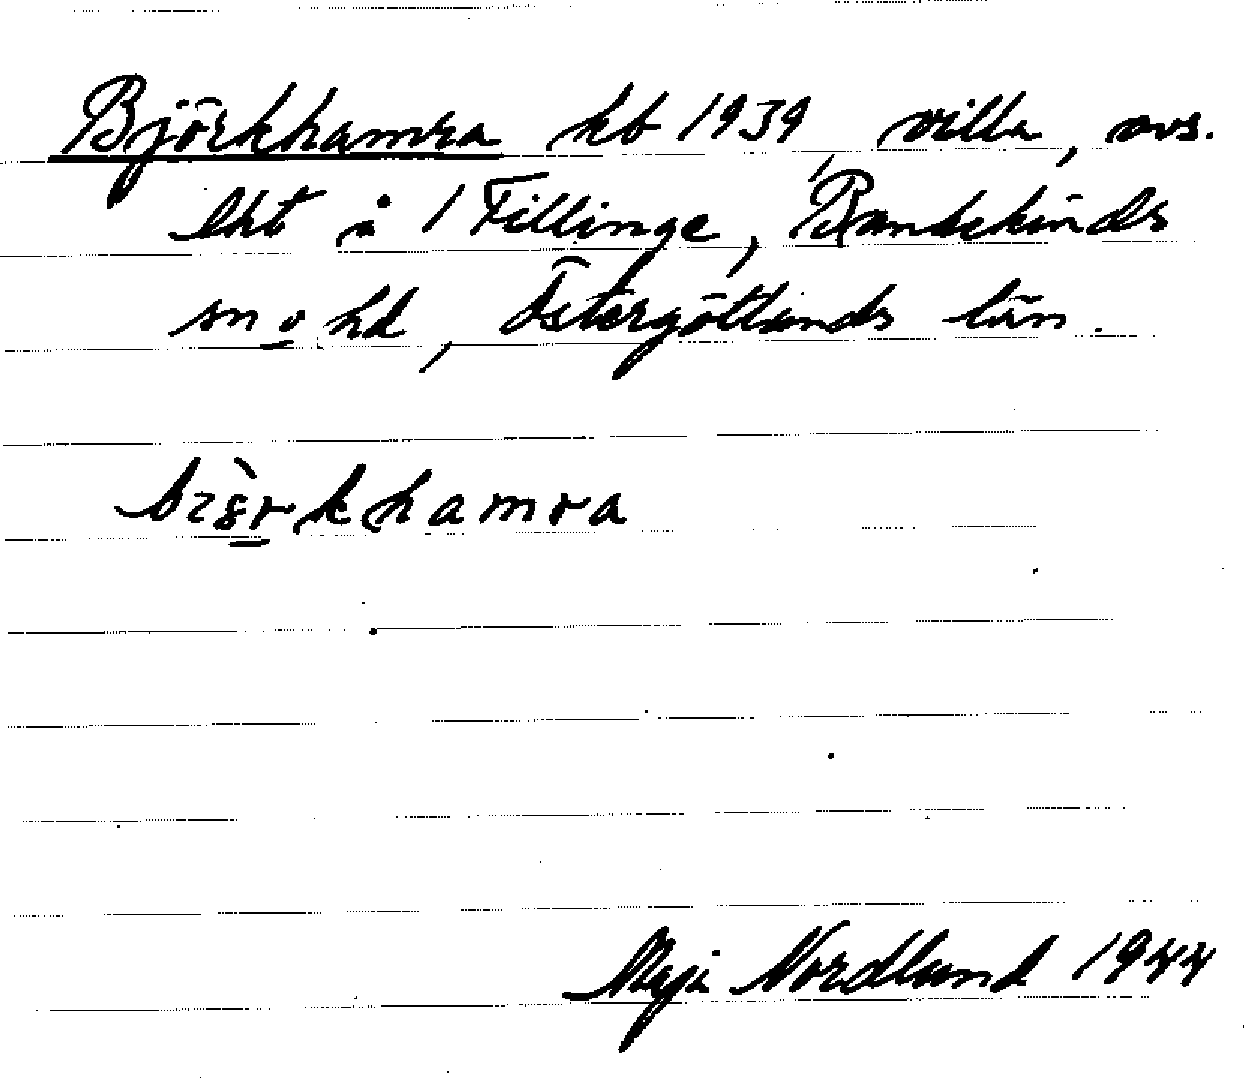 Björkhamra hb 1939, villa, avs.
lht å 1 Fillinge, Bankekinds
sn o hd, Östergötlands län.
bɪ8rkhamra
Maja Nordlund 1944